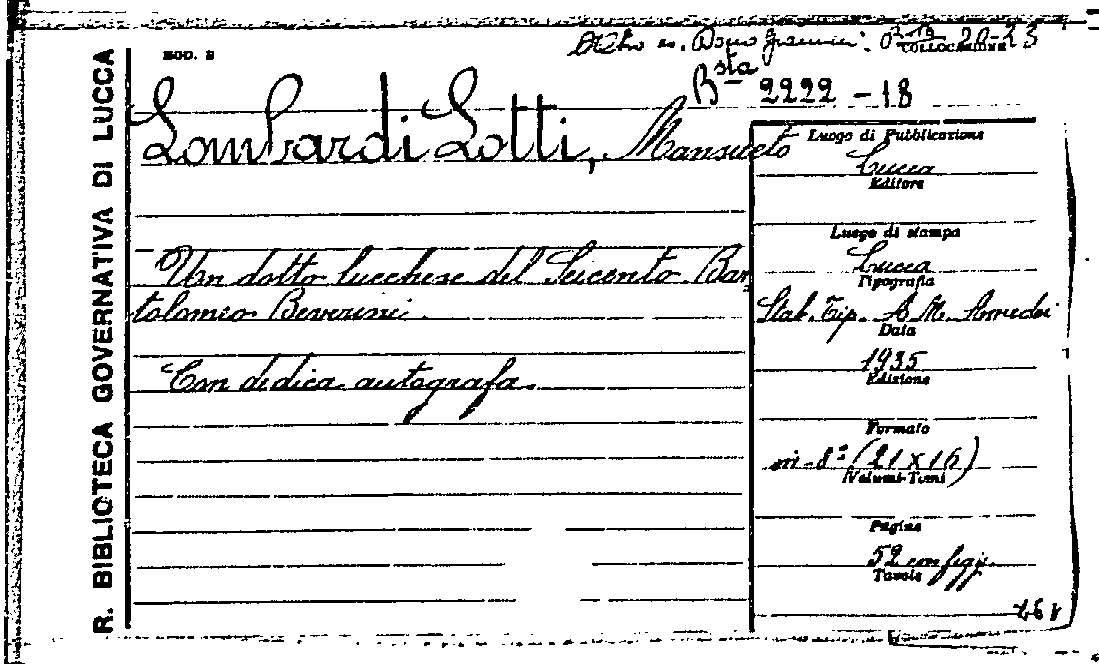 R. BIBLIOTECA GOVERNATIVA DI LUCCA
MOD. 2
COLLOCAZIONE
20-23
Bsta 2222-18
Lombardi Lotti, Mansueto
Un dotto lucchese del Seicento Bar
tolomeo Beverini.
Con dedica autografa.
Luogo di Pubblicazione
Lucca
Editore
Luogo di stampa
Lucca
Tipografia
Stab. Tip. A. M. Amedei
Data
1935
Edizione
Formato
in-8º (21x16)
Volumi-Tomi
Pagine
52 con figg.
Tavole